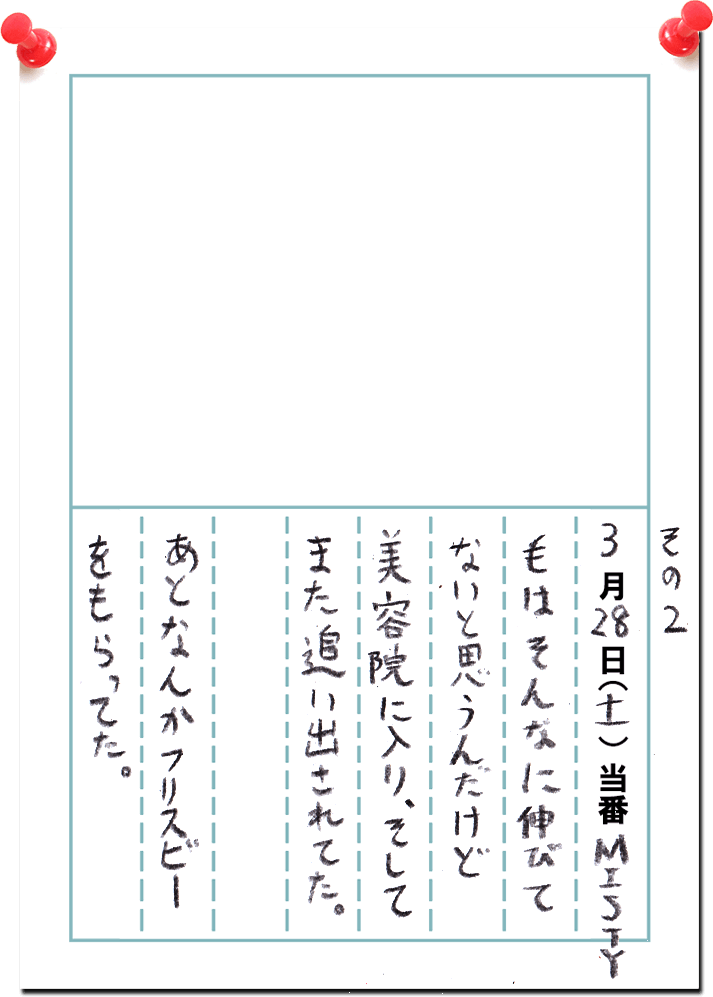 その2
3月28日(土)当番MISTY
毛はそんなに伸びて
ないと思うんだけど
美容院に入り、そして
また追い出されてた。
あとなんかフリスビー
をもらってた。